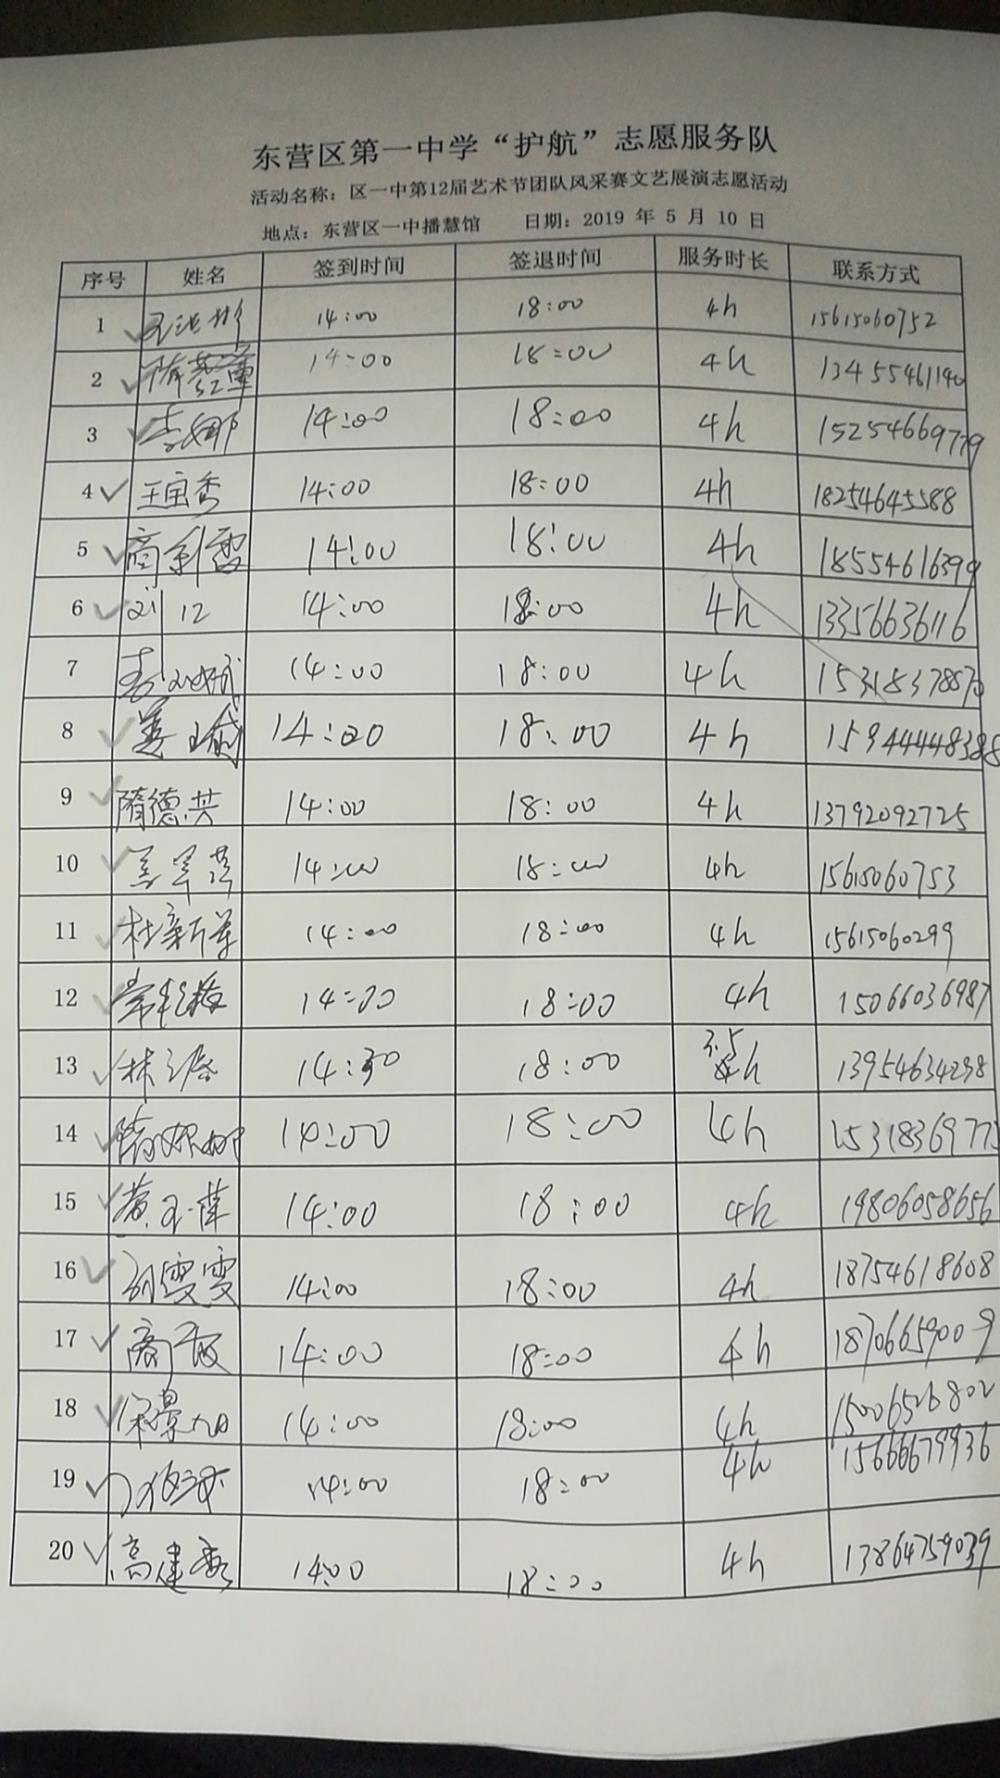 东营区第一中学“护航”志愿服务队
活动名称：区一中第12届艺术节团队风采赛文艺展演志愿活动
地点：东营区一中播慧馆 日期：2019 年 5 月 10 日
序号 姓名 签到时间 签退时间 服务时长 联系方式
1 14:00 18:00 4h 15615060752
2 14:00 18:00 4h 13455461140
3 李娜 14:00 18:00 4h 15254669779
4 王宝秀 14:00 18:00 4h 18254645588
5 商利霞 14:00 18:00 4h 18554616399
6 14:00 18:00 4h 13356636116
7 14:00 18:00 4h
8 姜玉斌 14:00 18:00 4h 15944448388
9 隋德共 14:00 18:00 4h 13792092725
10 14:00 18:00 4h 15615060753
11 杜新军 14:00 18:00 4h 15615060299
12 14:00 18:00 4h 15066036987
13 14:30 18:00 3.5h 13954634298
14 14:00 18:00 4h
15 黄玉萍 14:00 18:00 4h 19806058656
16 14:00 18:00 4h 18754618608
17 商敏 14:00 18:00 4h 18706659009
18 14:00 18:00 4h 15006526802
19 14:00 18:00 4h 15666679936
20 高建 14:00 18:00 4h 13864759039